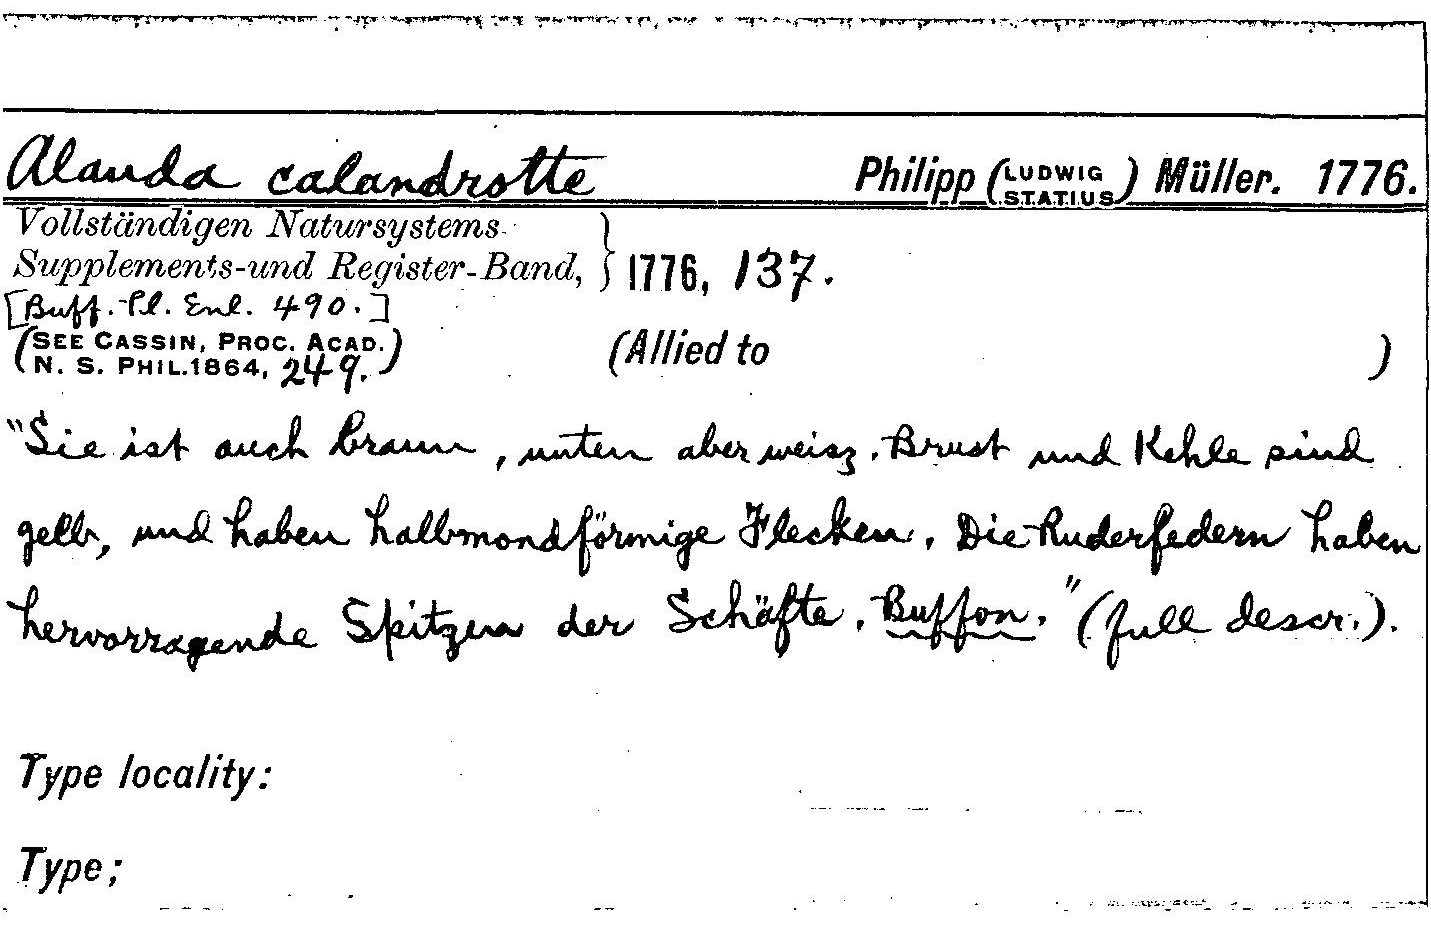 Alauda calandrotte Philipp (LUDWIG STATIUS) Müller. 1776.
Vollständigen Natursystems
Supplements-und Register-Band, } 1776, 137.
[Buff. Pl. Enl. 490.]
(SEE CASSIN, PROC. ACAD.
N. S. PHIL. 1864, 249.) (Allied to )
"Sie ist auch braun, unten aber weisz. Brust und Kehle sind
gelb, und haben halbmondförmige Flecken. Die Ruderfedern haben
hervorragende Spitzen der Schäfte. Buffon." (full descr.).
Type locality:
Type;